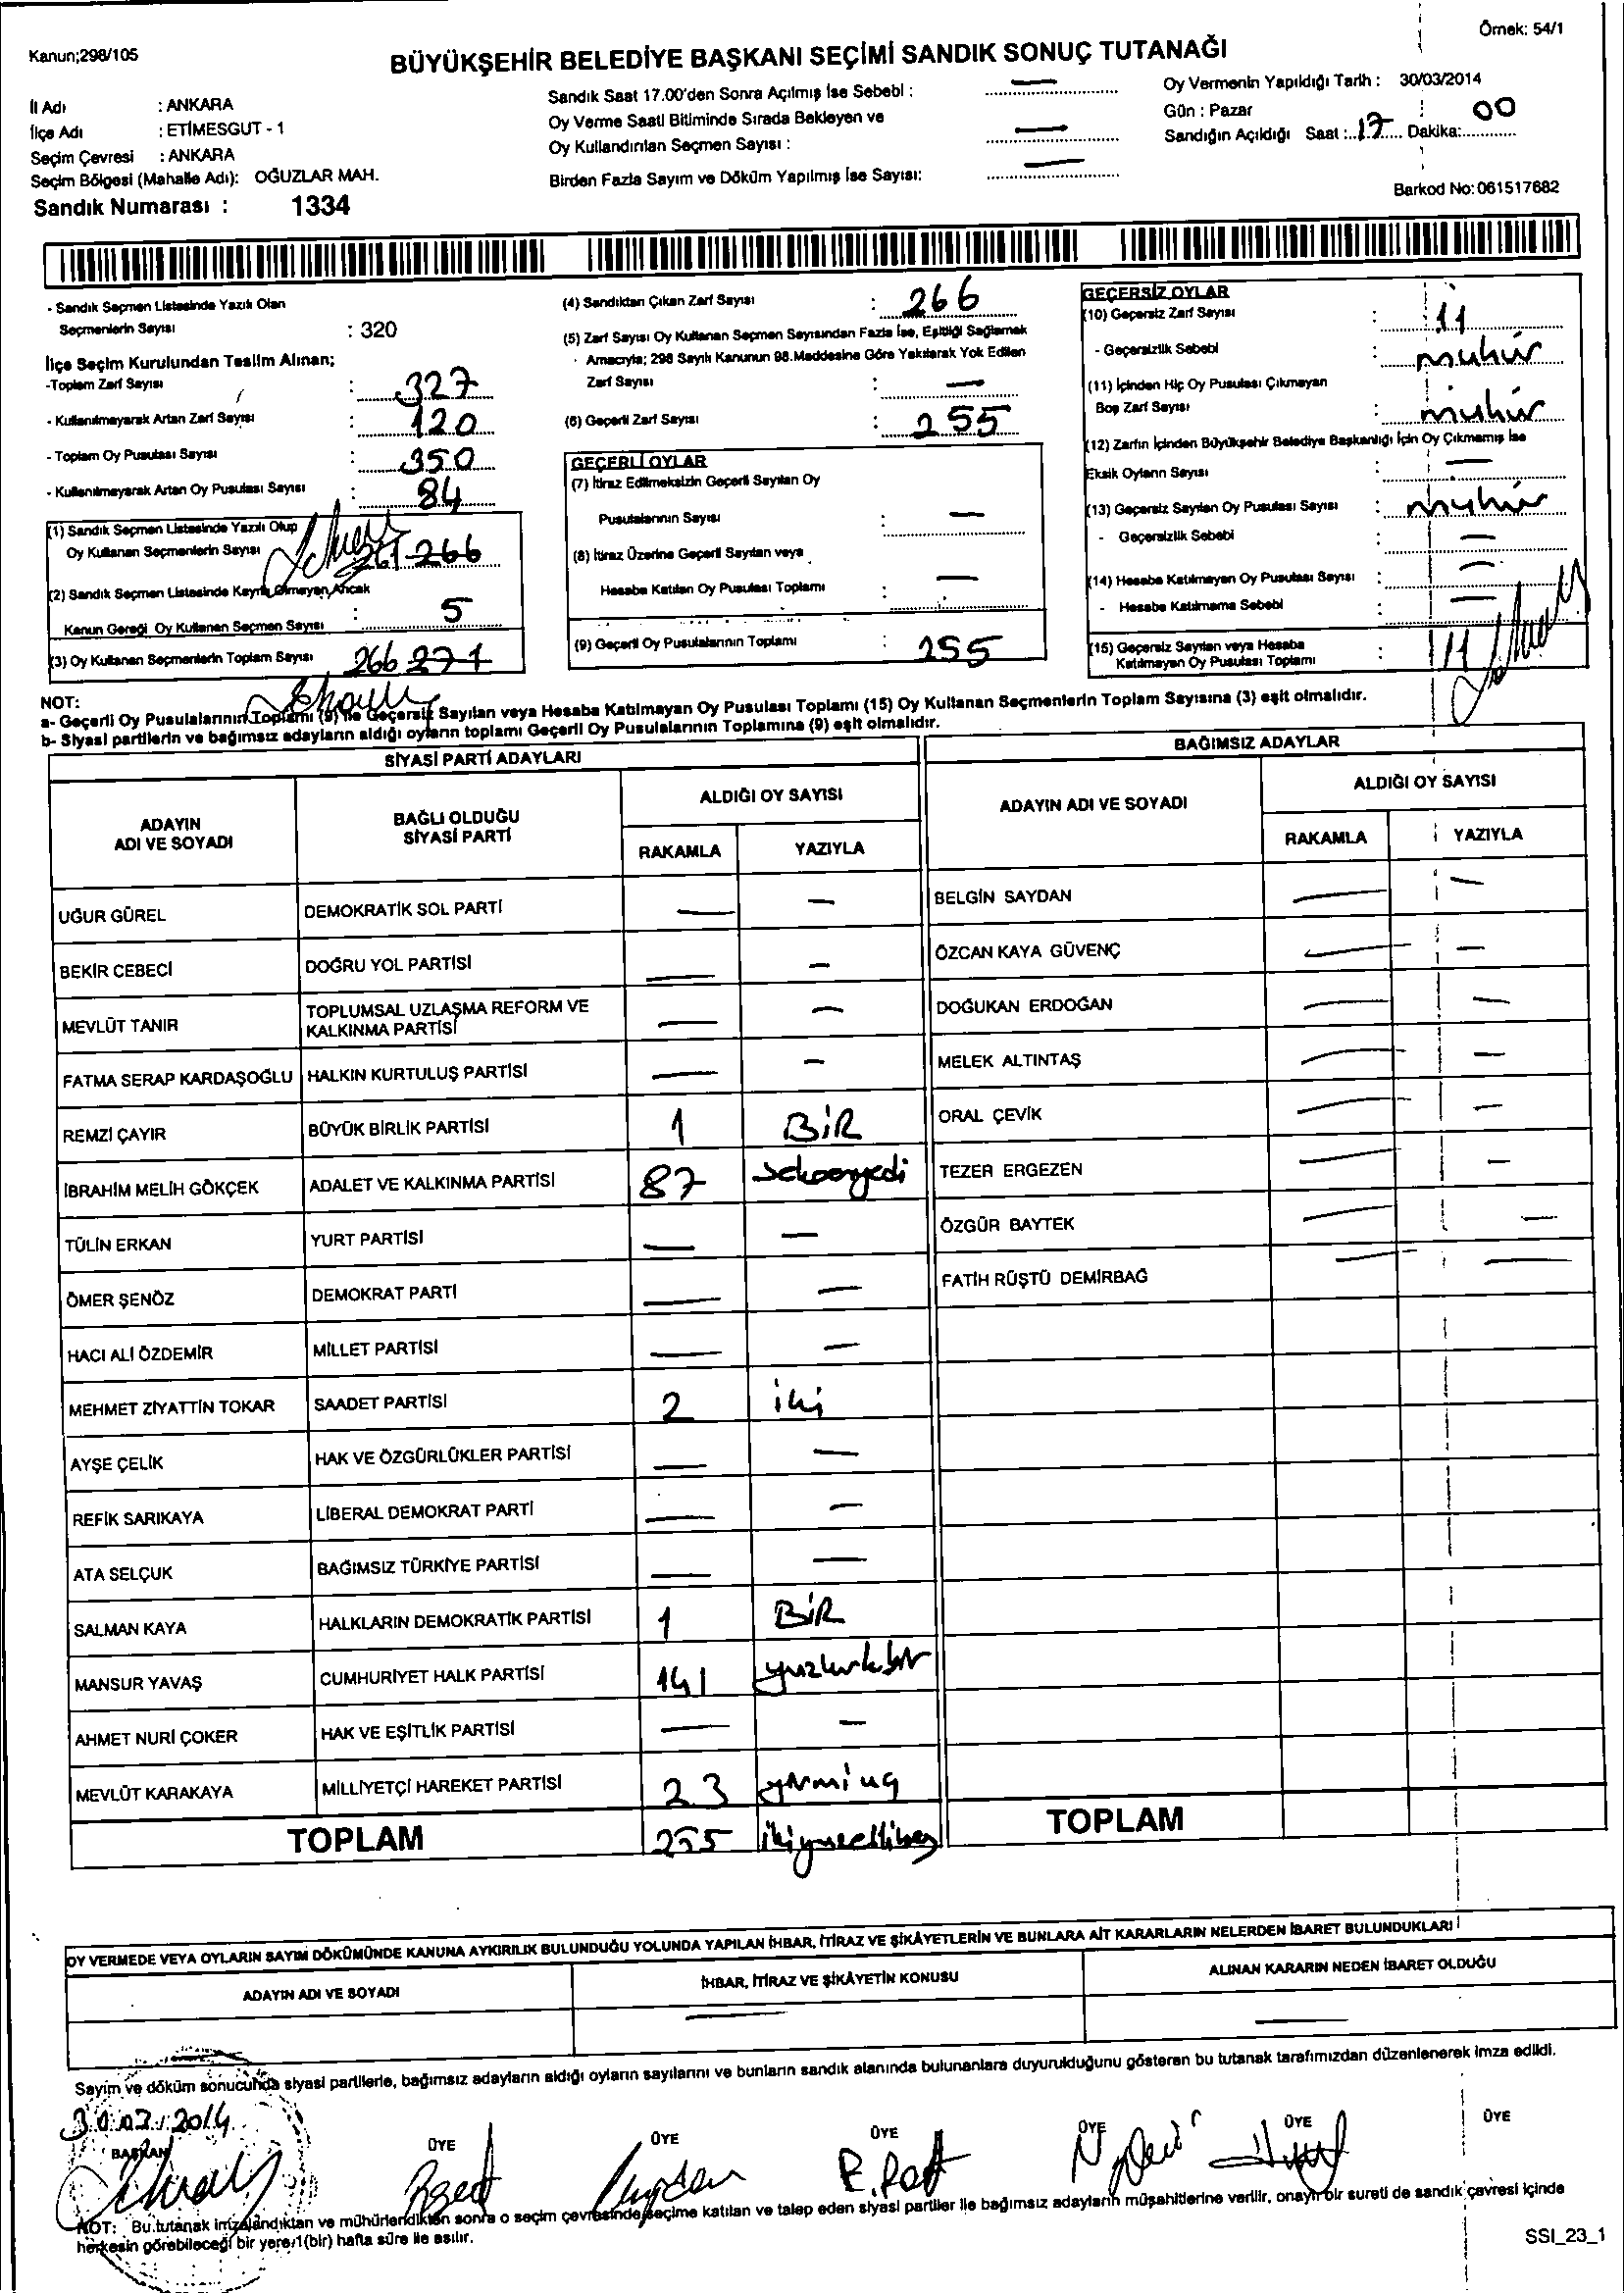 Kanun;298/105
Örnek: 54/1
BÜYÜKŞEHİR BELEDİYE BAŞKANI SEÇİMİ SANDIK SONUÇ TUTANAĞI
İl Adı : ANKARA
İlçe Adı : ETİMESGUT - 1
Seçim Çevresi : ANKARA
Seçim Bölgesi (Mahalle Adı): OĞUZLAR MAH.
Sandık Numarası : 1334
Sandık Saat 17.00'den Sonra Açılmış İse Sebebi : —
Oy Verme Saati Bitiminde Sırada Bekleyen ve
Oy Kullandırılan Seçmen Sayısı : —
Birden Fazla Sayım ve Döküm Yapılmış İse Sayısı: —
Oy Vermenin Yapıldığı Tarih : 30/03/2014
Gün : Pazar
Sandığın Açıldığı Saat : 17 Dakika: 00
Barkod No: 061517682
- Sandık Seçmen Listesinde Yazılı Olan
Seçmenlerin Sayısı : 320
İlçe Seçim Kurulundan Teslim Alınan;
-Toplam Zarf Sayısı : 327
- Kullanılmayarak Artan Zarf Sayısı : 120
- Toplam Oy Pusulası Sayısı : 350
- Kullanılmayarak Artan Oy Pusulası Sayısı : 84
(1) Sandık Seçmen Listesinde Yazılı Olup
Oy Kullanan Seçmenlerin Sayısı 261 266
(2) Sandık Seçmen Listesinde Kayıtlı Olmayan Ancak
Kanun Gereği Oy Kullanan Seçmen Sayısı : 5
(3) Oy Kullanan Seçmenlerin Toplam Sayısı 266 271
(4) Sandıktan Çıkan Zarf Sayısı : 266
(5) Zarf Sayısı Oy Kullanan Seçmen Sayısından Fazla İse, Eşitliği Sağlamak
Amacıyla; 298 Sayılı Kanunun 98.Maddesine Göre Yakılarak Yok Edilen
Zarf Sayısı : —
(6) Geçerli Zarf Sayısı : 255
GEÇERLİ OYLAR
(7) İtiraz Edilmeksizin Geçerli Sayılan Oy
Pusulalarının Sayısı : —
(8) İtiraz Üzerine Geçerli Sayılan veya
Hesaba Katılan Oy Pusulası Toplamı : —
(9) Geçerli Oy Pusulalarının Toplamı : 255
GEÇERSİZ OYLAR
(10) Geçersiz Zarf Sayısı : 11
- Geçersizlik Sebebi : mühür
(11) İçinden Hiç Oy Pusulası Çıkmayan
Boş Zarf Sayısı : mühür
(12) Zarfın İçinden Büyükşehir Belediye Başkanlığı İçin Oy Çıkmamış İse
Eksik Oyların Sayısı : —
(13) Geçersiz Sayılan Oy Pusulası Sayısı : mühür
- Geçersizlik Sebebi : —
(14) Hesaba Katılmayan Oy Pusulası Sayısı : —
- Hesaba Katılmama Sebebi : —
(15) Geçersiz Sayılan veya Hesaba
Katılmayan Oy Pusulası Toplamı : 11
NOT:
a- Geçerli Oy Pusulalarının Toplamı (9) ile Geçersiz Sayılan veya Hesaba Katılmayan Oy Pusulası Toplamı (15) Oy Kullanan Seçmenlerin Toplam Sayısına (3) eşit olmalıdır.
b- Siyasi partilerin ve bağımsız adayların aldığı oyların toplamı Geçerli Oy Pusulalarının Toplamına (9) eşit olmalıdır.
SİYASİ PARTİ ADAYLARI
BAĞIMSIZ ADAYLAR
ADAYIN
ADI VE SOYADI
BAĞLI OLDUĞU
SİYASİ PARTİ
ALDIĞI OY SAYISI
RAKAMLA YAZIYLA
ADAYIN ADI VE SOYADI
ALDIĞI OY SAYISI
RAKAMLA YAZIYLA
UĞUR GÜREL DEMOKRATİK SOL PARTİ — —
BEKİR CEBECİ DOĞRU YOL PARTİSİ — —
MEVLÜT TANIR TOPLUMSAL UZLAŞMA REFORM VE
KALKINMA PARTİSİ — —
FATMA SERAP KARDAŞOĞLU HALKIN KURTULUŞ PARTİSİ — —
REMZİ ÇAYIR BÜYÜK BİRLİK PARTİSİ 1 BİR
İBRAHİM MELİH GÖKÇEK ADALET VE KALKINMA PARTİSİ 87 seksenyedi
TÜLİN ERKAN YURT PARTİSİ — —
ÖMER ŞENÖZ DEMOKRAT PARTİ — —
HACI ALİ ÖZDEMİR MİLLET PARTİSİ — —
MEHMET ZİYATTİN TOKAR SAADET PARTİSİ 2 iki
AYŞE ÇELİK HAK VE ÖZGÜRLÜKLER PARTİSİ — —
REFİK SARIKAYA LİBERAL DEMOKRAT PARTİ — —
ATA SELÇUK BAĞIMSIZ TÜRKİYE PARTİSİ — —
SALMAN KAYA HALKLARIN DEMOKRATİK PARTİSİ 1 BİR
MANSUR YAVAŞ CUMHURİYET HALK PARTİSİ 141 yüzkırkbir
AHMET NURİ ÇOKER HAK VE EŞİTLİK PARTİSİ — —
MEVLÜT KARAKAYA MİLLİYETÇİ HAREKET PARTİSİ 23 yirmi üç
TOPLAM 255 ikiyüzellibeş
BELGİN SAYDAN — —
ÖZCAN KAYA GÜVENÇ — —
DOĞUKAN ERDOĞAN — —
MELEK ALTINTAŞ — —
ORAL ÇEVİK — —
TEZER ERGEZEN — —
ÖZGÜR BAYTEK — —
FATİH RÜŞTÜ DEMİRBAĞ — —
TOPLAM
OY VERMEDE VEYA OYLARIN SAYIM DÖKÜMÜNDE KANUNA AYKIRILIK BULUNDUĞU YOLUNDA YAPILAN İHBAR, İTİRAZ VE ŞİKÂYETLERİN VE BUNLARA AİT KARARLARIN NELERDEN İBARET BULUNDUKLARI
ADAYIN ADI VE SOYADI İHBAR, İTİRAZ VE ŞİKÂYETİN KONUSU ALINAN KARARIN NEDEN İBARET OLDUĞU
— —
Sayım ve döküm sonucunda siyasi partilerle, bağımsız adayların aldığı oyların sayılarını ve bunların sandık alanında bulunanlara duyurulduğunu gösteren bu tutanak tarafımızdan düzenlenerek imza edildi.
30.03.2014
BAŞKAN ÜYE ÜYE ÜYE ÜYE ÜYE ÜYE
NOT: Bu tutanak imzalandıktan ve mühürlendikten sonra o seçim çevresinde seçime katılan ve talep eden siyasi partiler ile bağımsız adayların müşahitlerine verilir, onaylı bir sureti de sandık çevresi içinde
herkesin görebileceği bir yere 1(bir) hafta süre ile asılır.
SSI_23_1